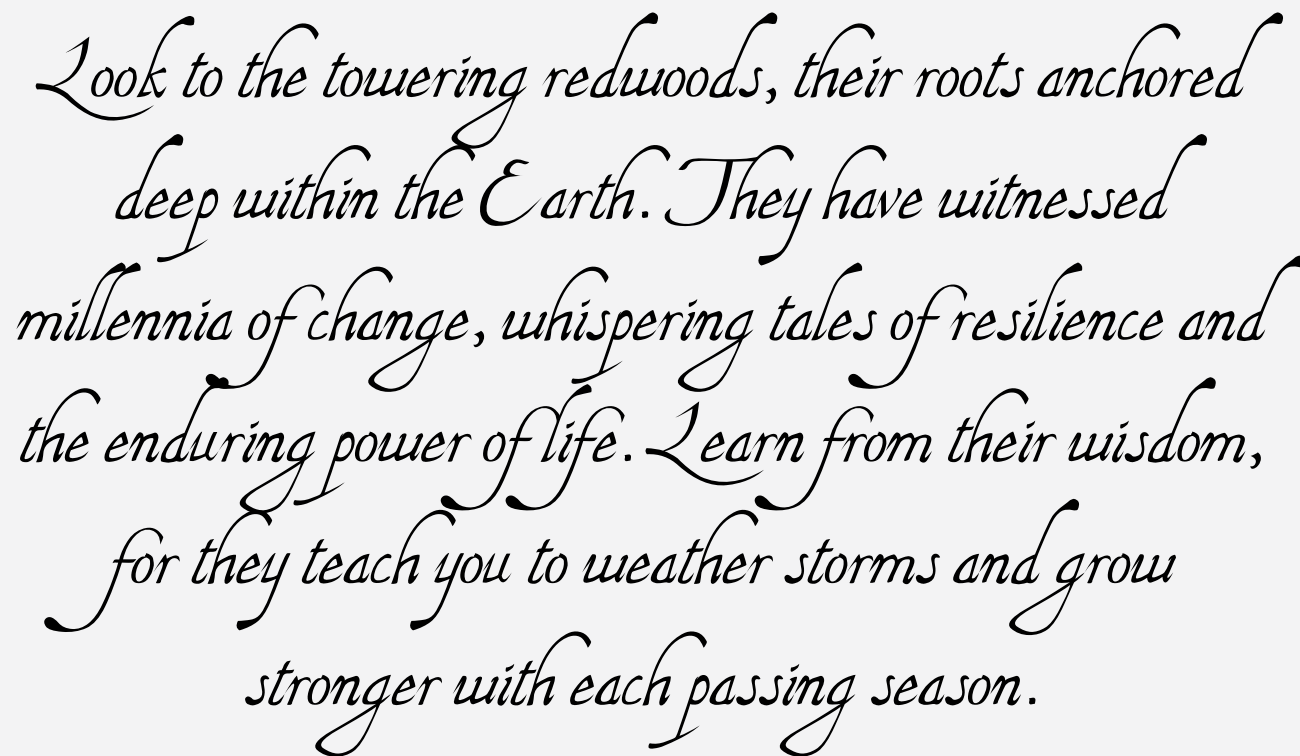 Look to the towering redwoods, their roots anchored
deep within the Earth. They have witnessed
millennia of change, whispering tales of resilience and
the enduring power of life. Learn from their wisdom,
for they teach you to weather storms and grow
stronger with each passing season.